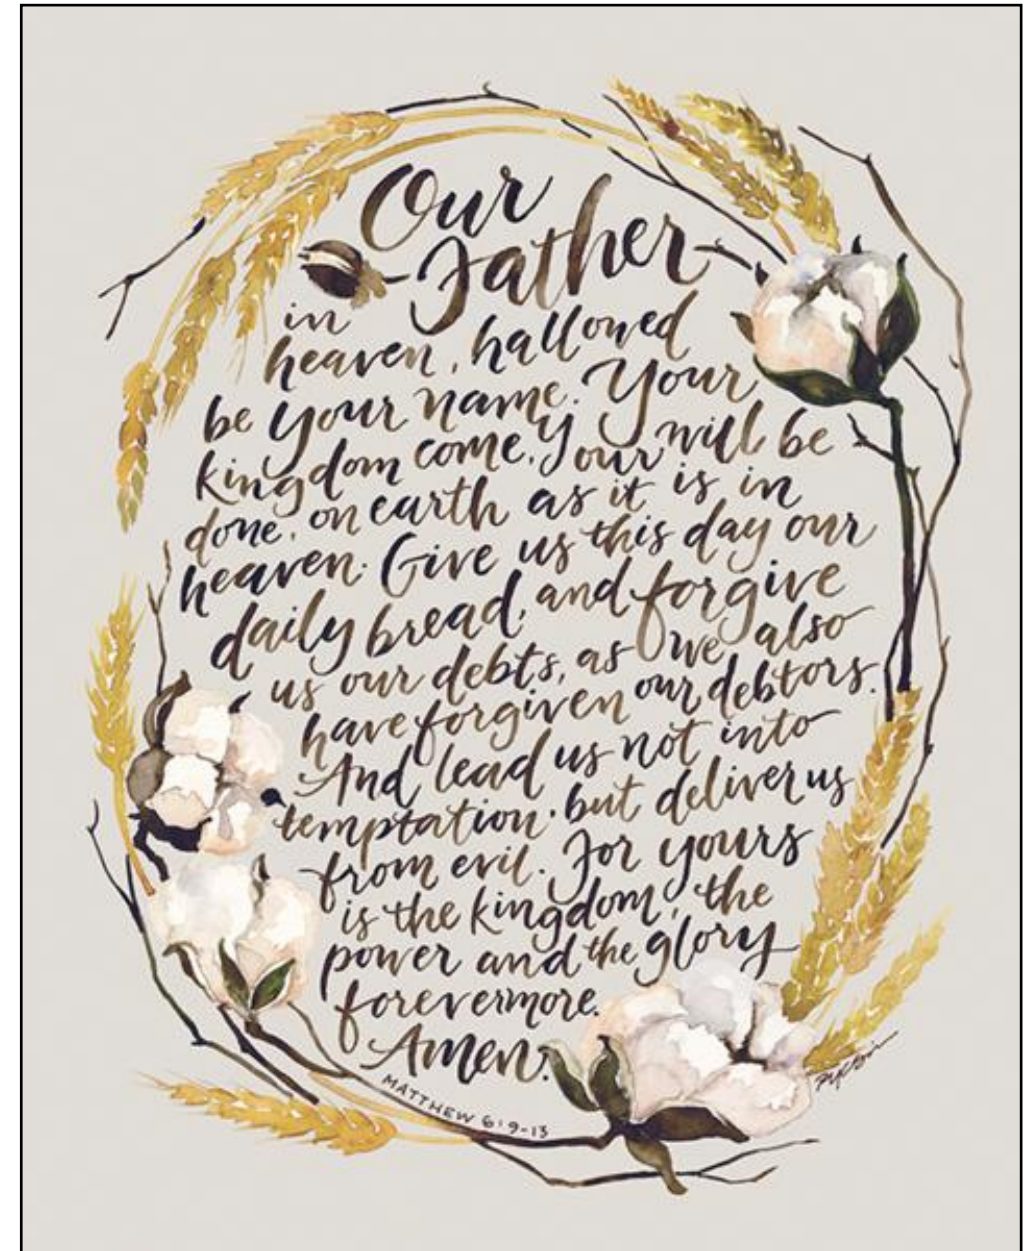 Our
Father
in
heaven, hallowed
be your name. Your
kingdom come, your will be
done, on earth as it is in
heaven. Give us this day our
daily bread, and forgive
us our debts, as we also
have forgiven our debtors.
And lead us not into
temptation, but deliver us
from evil. For yours
is the kingdom, the
power and the glory
forevermore.
Amen.
MATTHEW 6:9-13